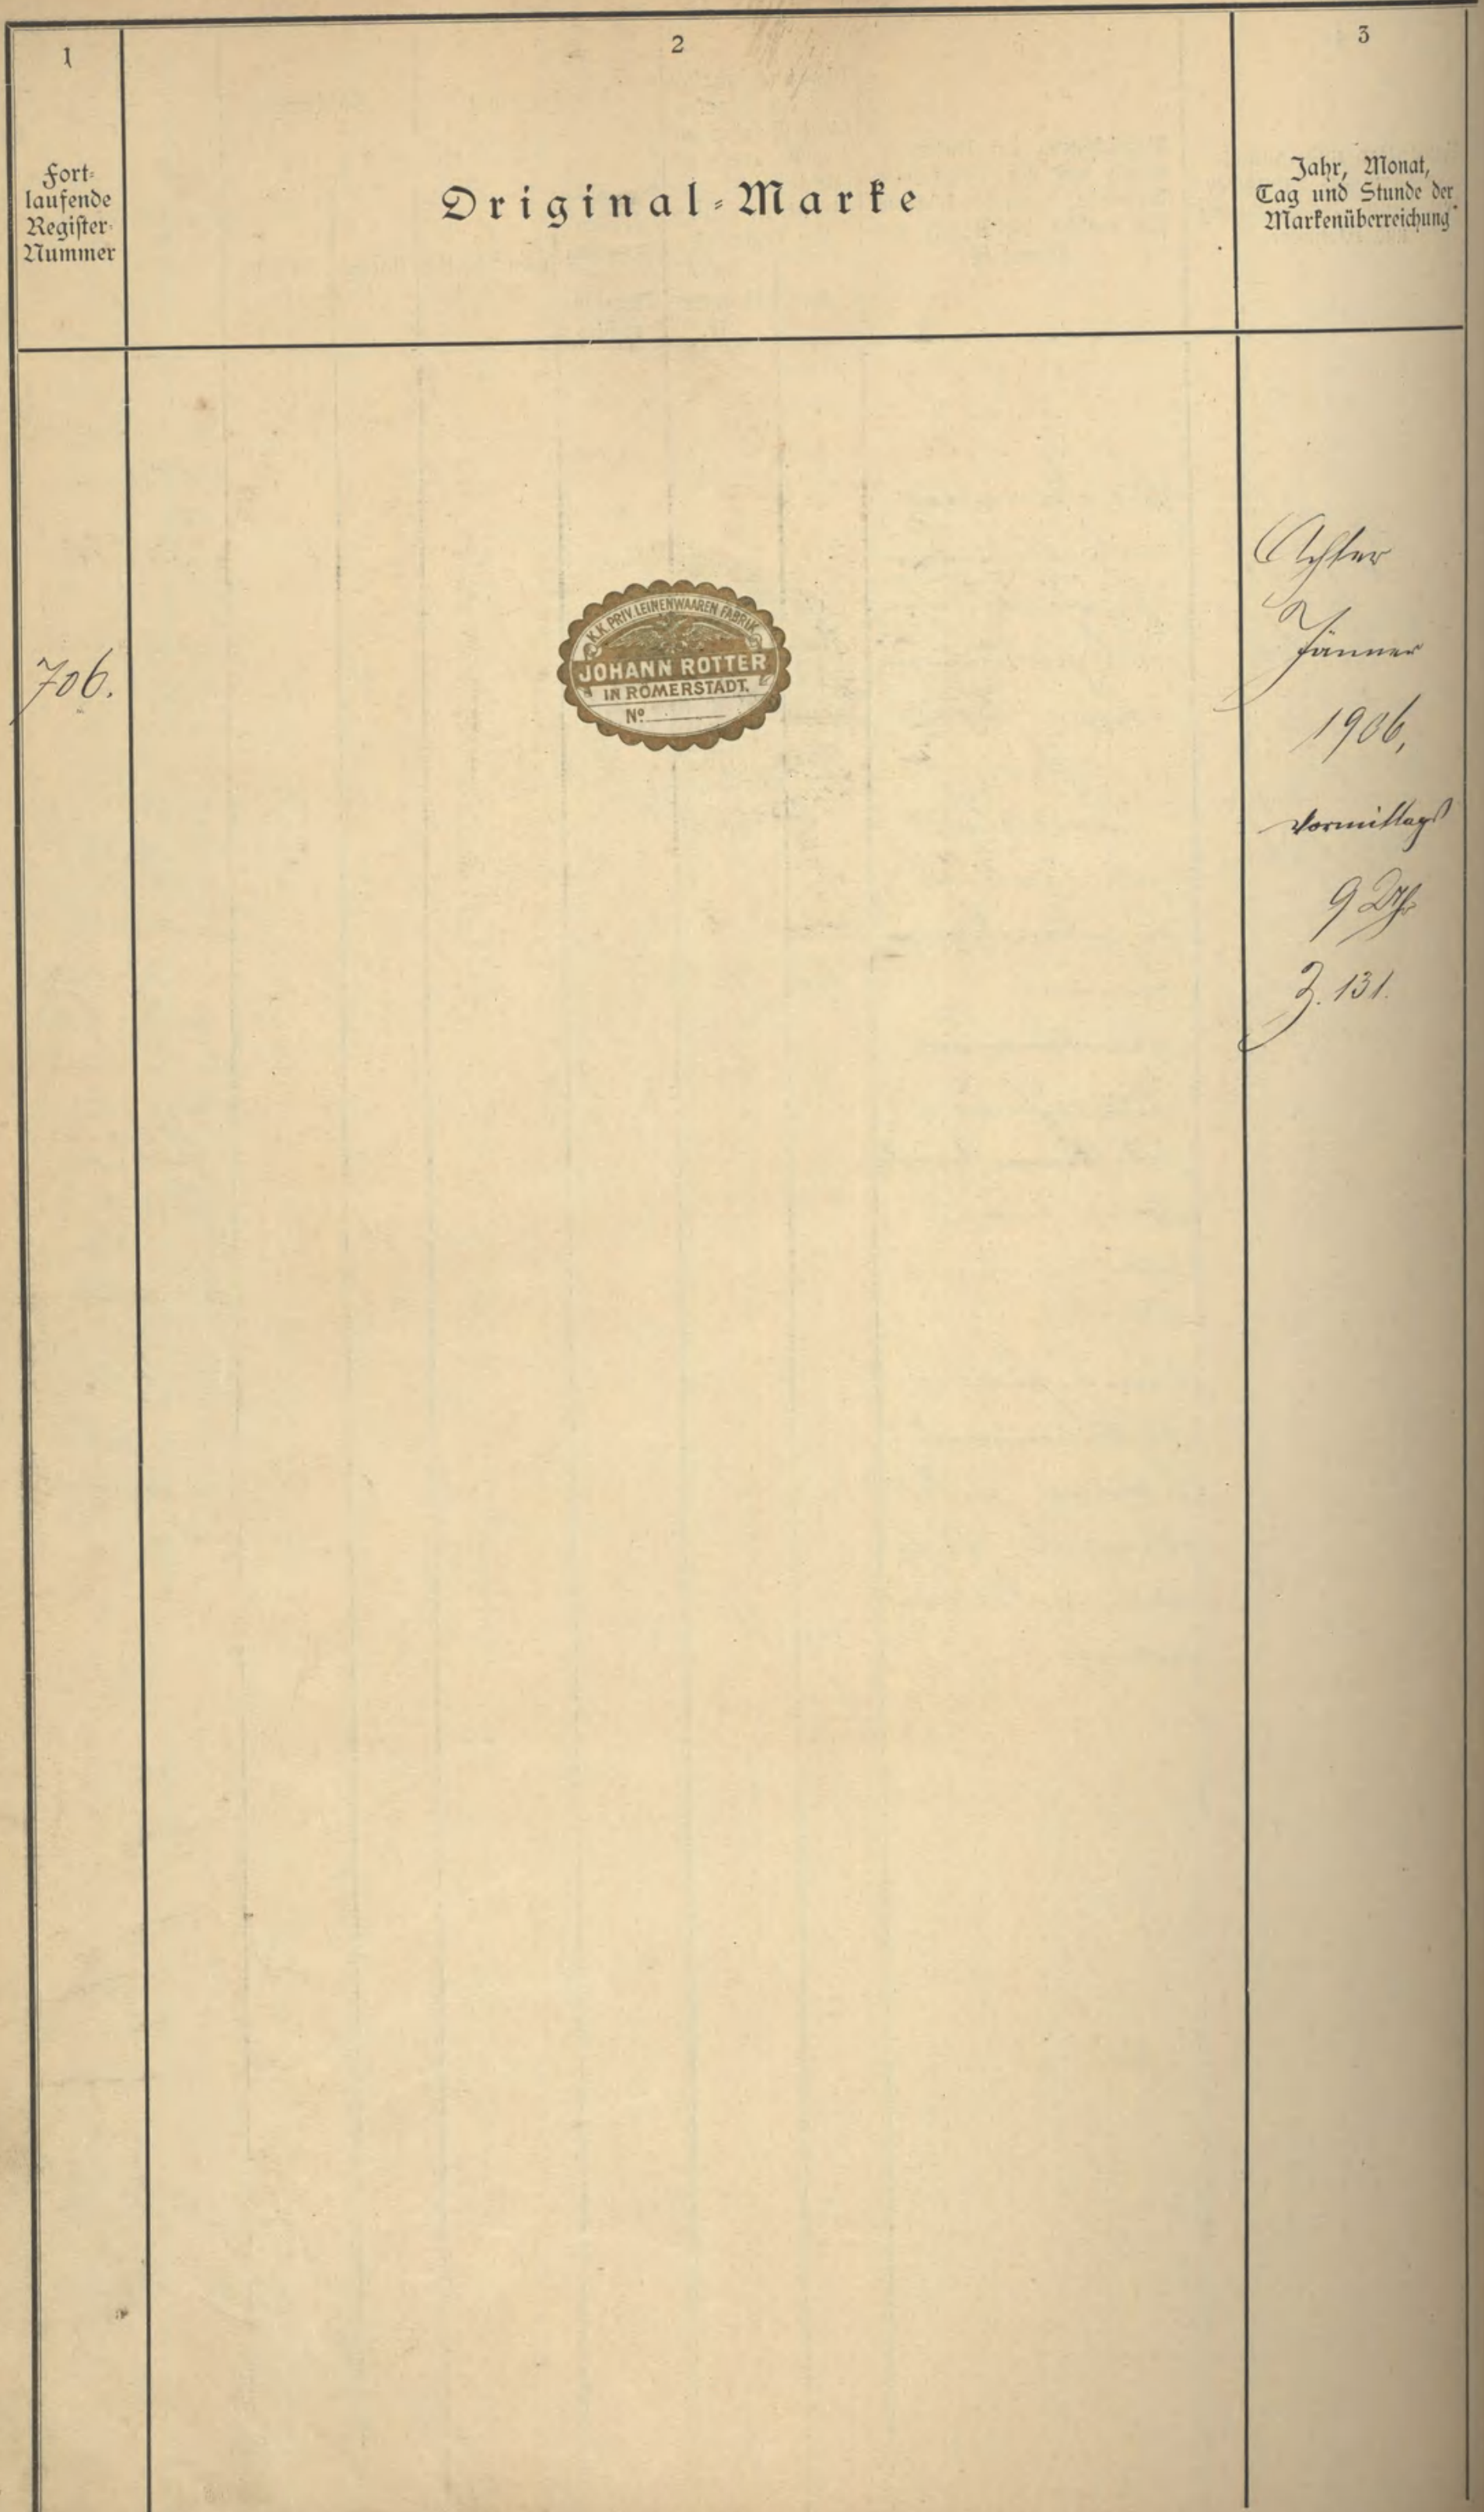 1
2
3
Fort-
laufende
Register-
Nummer
Original-Marke
Jahr, Monat,
Tag und Stunde der
Markenüberreichung
706.
K.K. PRIV. LEINENWAAREN FABRIK
JOHANN ROTTER
IN RÖMERSTADT.
Nº
Achter
Jänner
1906,
Vormittags
9 Uhr
Z. 131.